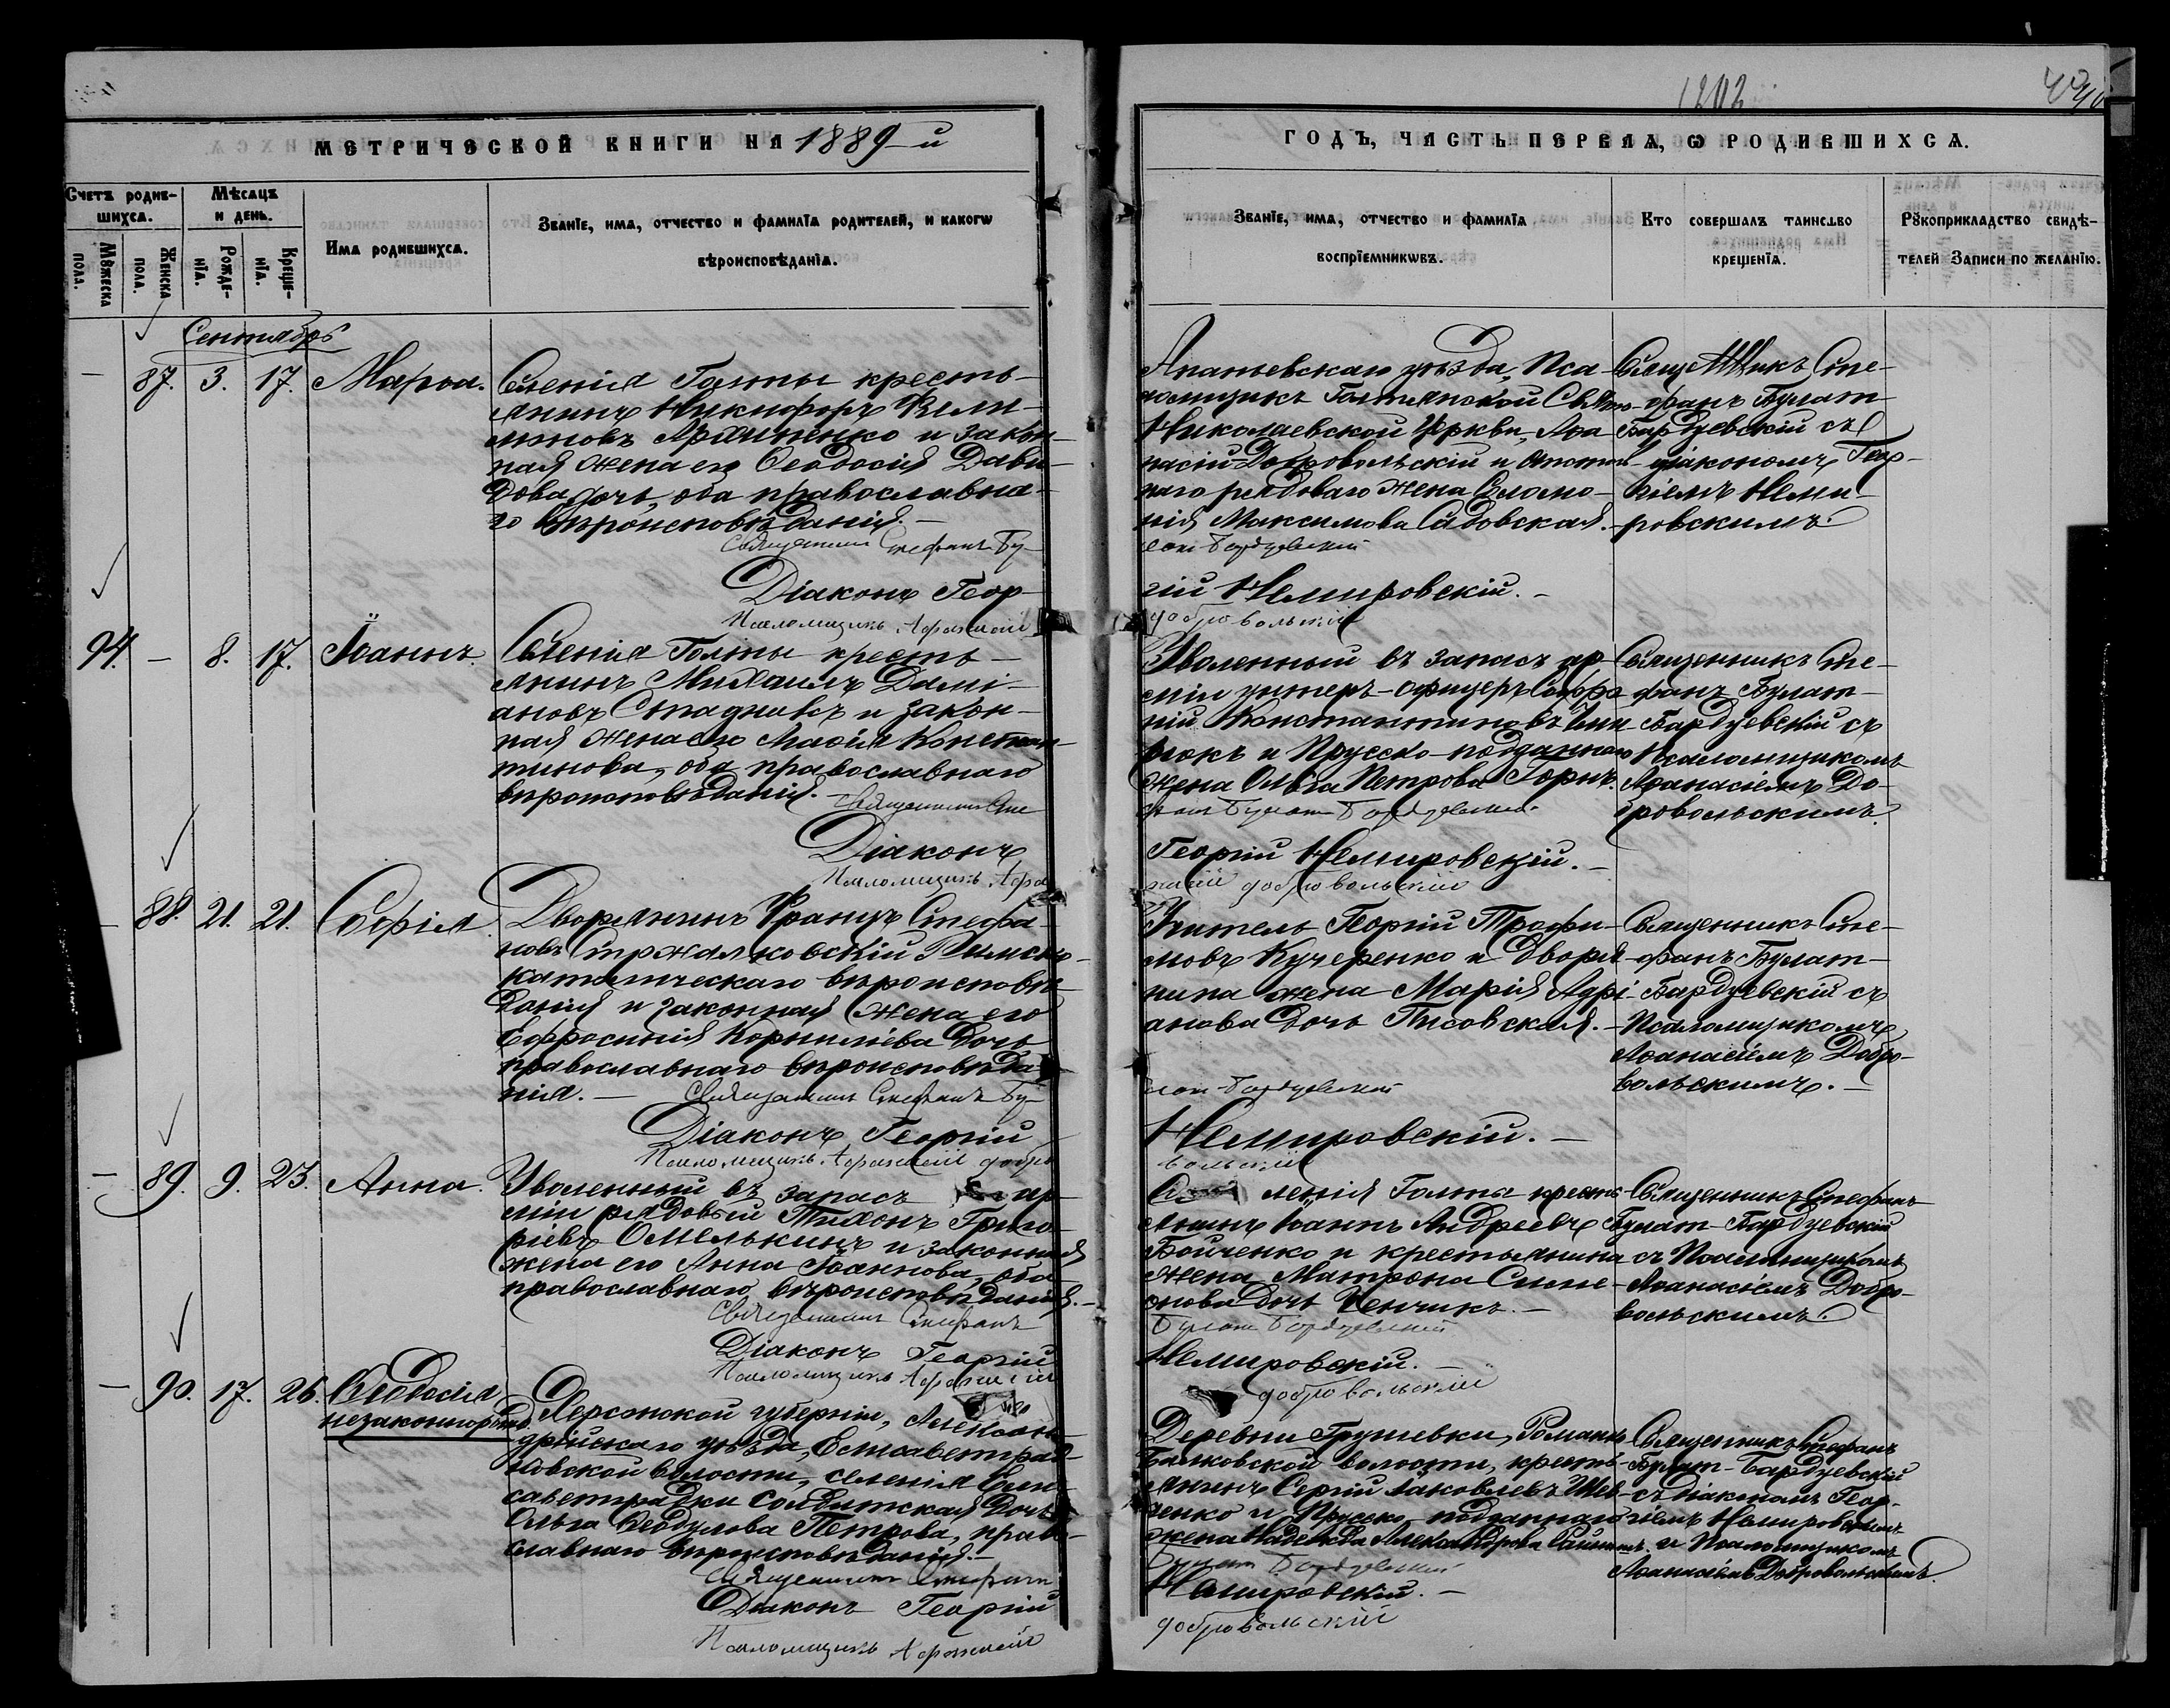 1202
МЕТРИЧЕСКОЙ КНИГИ НА 1889-й
ГОДЪ, ЧАСТЬ ПЕРВАЯ, Ѡ РОДИВШИХСѦ.
Счетъ родив-
шихсѧ.
Мѣсѧцъ
и день.
Мꙋжеска
пола.
Женска
пола.
Рожде-
нїѧ.
Креще-
нїѧ.
Имѧ родившихсѧ.
Званїе, имѧ, отчество и фамилїѧ родителей, и какогѡ
вѣроисповѣданїѧ.
Званїе, имѧ, отчество и фамилїѧ
воспрїемникѡвъ.
Кто совершалъ таинство
крещенїѧ.
Рꙋкоприкладство свидѣ-
телей Записи по желанїю.
Сентябрь
— 87. 3. 17. Марѳа.
Селенія Голты кресть-
янинъ Никифоръ
и закон-
ная жена его Ѳеодосія Дави-
дова дочь, оба православна-
го вѣроисповѣданія. —
Священникъ Стефанъ Бу-
Діаконъ Геор-
Псаломщикъ Аѳанасій
Ананьевскаго уѣзда, Пса-
ломщикъ Голтянской Свято-
Николаевской Церкви, Аѳа-
насій Добровольскій и отстав-
наго рядоваго жена Соломо-
нія Максимова Садовская. —
латъ-Бардуевскій
гій Немировскій. —
Добровольскій
Священникъ Сте-
фанъ Булат-
Бардуевскій съ
діакономъ Геор-
гіемъ Неми-
ровскимъ.
94. — 8. 17. Іоаннъ.
Селенія Голты кресть-
янинъ Михаилъ Дамі-
ановъ Стадникъ и закон-
ная жена его Марія Констан-
тинова, оба православнаго
вѣроисповѣданія. —
Священникъ Сте
Діаконъ
Псаломщикъ Аѳа
Уволенный въ запасъ ар-
міи унтеръ-офицеръ Софро-
ній Константиновъ
и Прусско-подданнаго
жена Ольга Петрова Горнъ.
фанъ Булатъ Бардуевскій
Георгій Немировскій. —
насій Добровольскій
Священникъ Сте-
фанъ Булат-
Бардуевскій съ
Псаломщикомъ
Аѳанасіемъ До-
бровольскимъ.
— 88. 21. 21. Софія.
Дворянинъ Францъ Стефа-
новъ Стржалковскій Римско-
католическаго вѣроисповѣ-
данія и законная жена его
Ефросинія Корниліева дочь
православнаго вѣроисповѣда-
нія. — Священникъ Стефанъ Бу-
Діаконъ Георгій
Псаломщикъ Аѳанасій Добро
Учитель Георгій Трофи-
мовъ Кучеренко и Дворя-
нина жена Марія Адрі-
анова дочь Писовская. —
латъ-Бардуевскій
Немировскій. —
вольскій
Священникъ Сте-
фанъ Булат-
Бардуевскій съ
Псаломщикомъ
Аѳанасіемъ Добро-
вольскимъ. —
— 89. 9. 23. Анна.
Уволенный въ запасъ ар-
міи рядовый Тихонъ Григо-
ріевъ Омелькинъ и законная
жена его Анна Іоаннова, оба
православнаго вѣроисповѣданія. —
Священникъ Стефанъ
Діаконъ Георгій
Псаломщикъ Аѳанасій
Селенія Голты кресть-
янинъ Іоаннъ Андреевъ
Бойченко и крестьянина
жена Матрона Симе-
онова дочь Ценчикъ. —
Булатъ Бардуевскій
Немировскій. —
Добровольскій
Священникъ Стефанъ
Булат-Бардуевскій
съ Псаломщикомъ
Аѳанасіемъ Добро-
вольскимъ.
— 90. 17. 26. Ѳеодосія
незаконнорожд.
Херсонской губерніи, Алексан-
дрійскаго уѣзда, Елисаветград-
ковской волости, селенія Ели-
саветградки Солдатская дочь
Ольга Ѳеодулова Петрова, право-
славнаго вѣроисповѣданія. —
Священникъ Стефанъ
Діаконъ Георгій
Псаломщикъ Аѳанасій
Деревни Грушевки, Романо-
Балковской волости, кресть-
янинъ Сергій Іаковлевъ Шев-
ченко и Прусско-подданнаго
жена Надежда Александрова
Булатъ Бардуевскій
Немировскій. —
Добровольскій
Священникъ Стефанъ
Булат-Бардуевскій
съ діакономъ Геор-
гіемъ Немировскимъ
и Псаломщикомъ
Аѳанасіемъ Добровольскимъ.